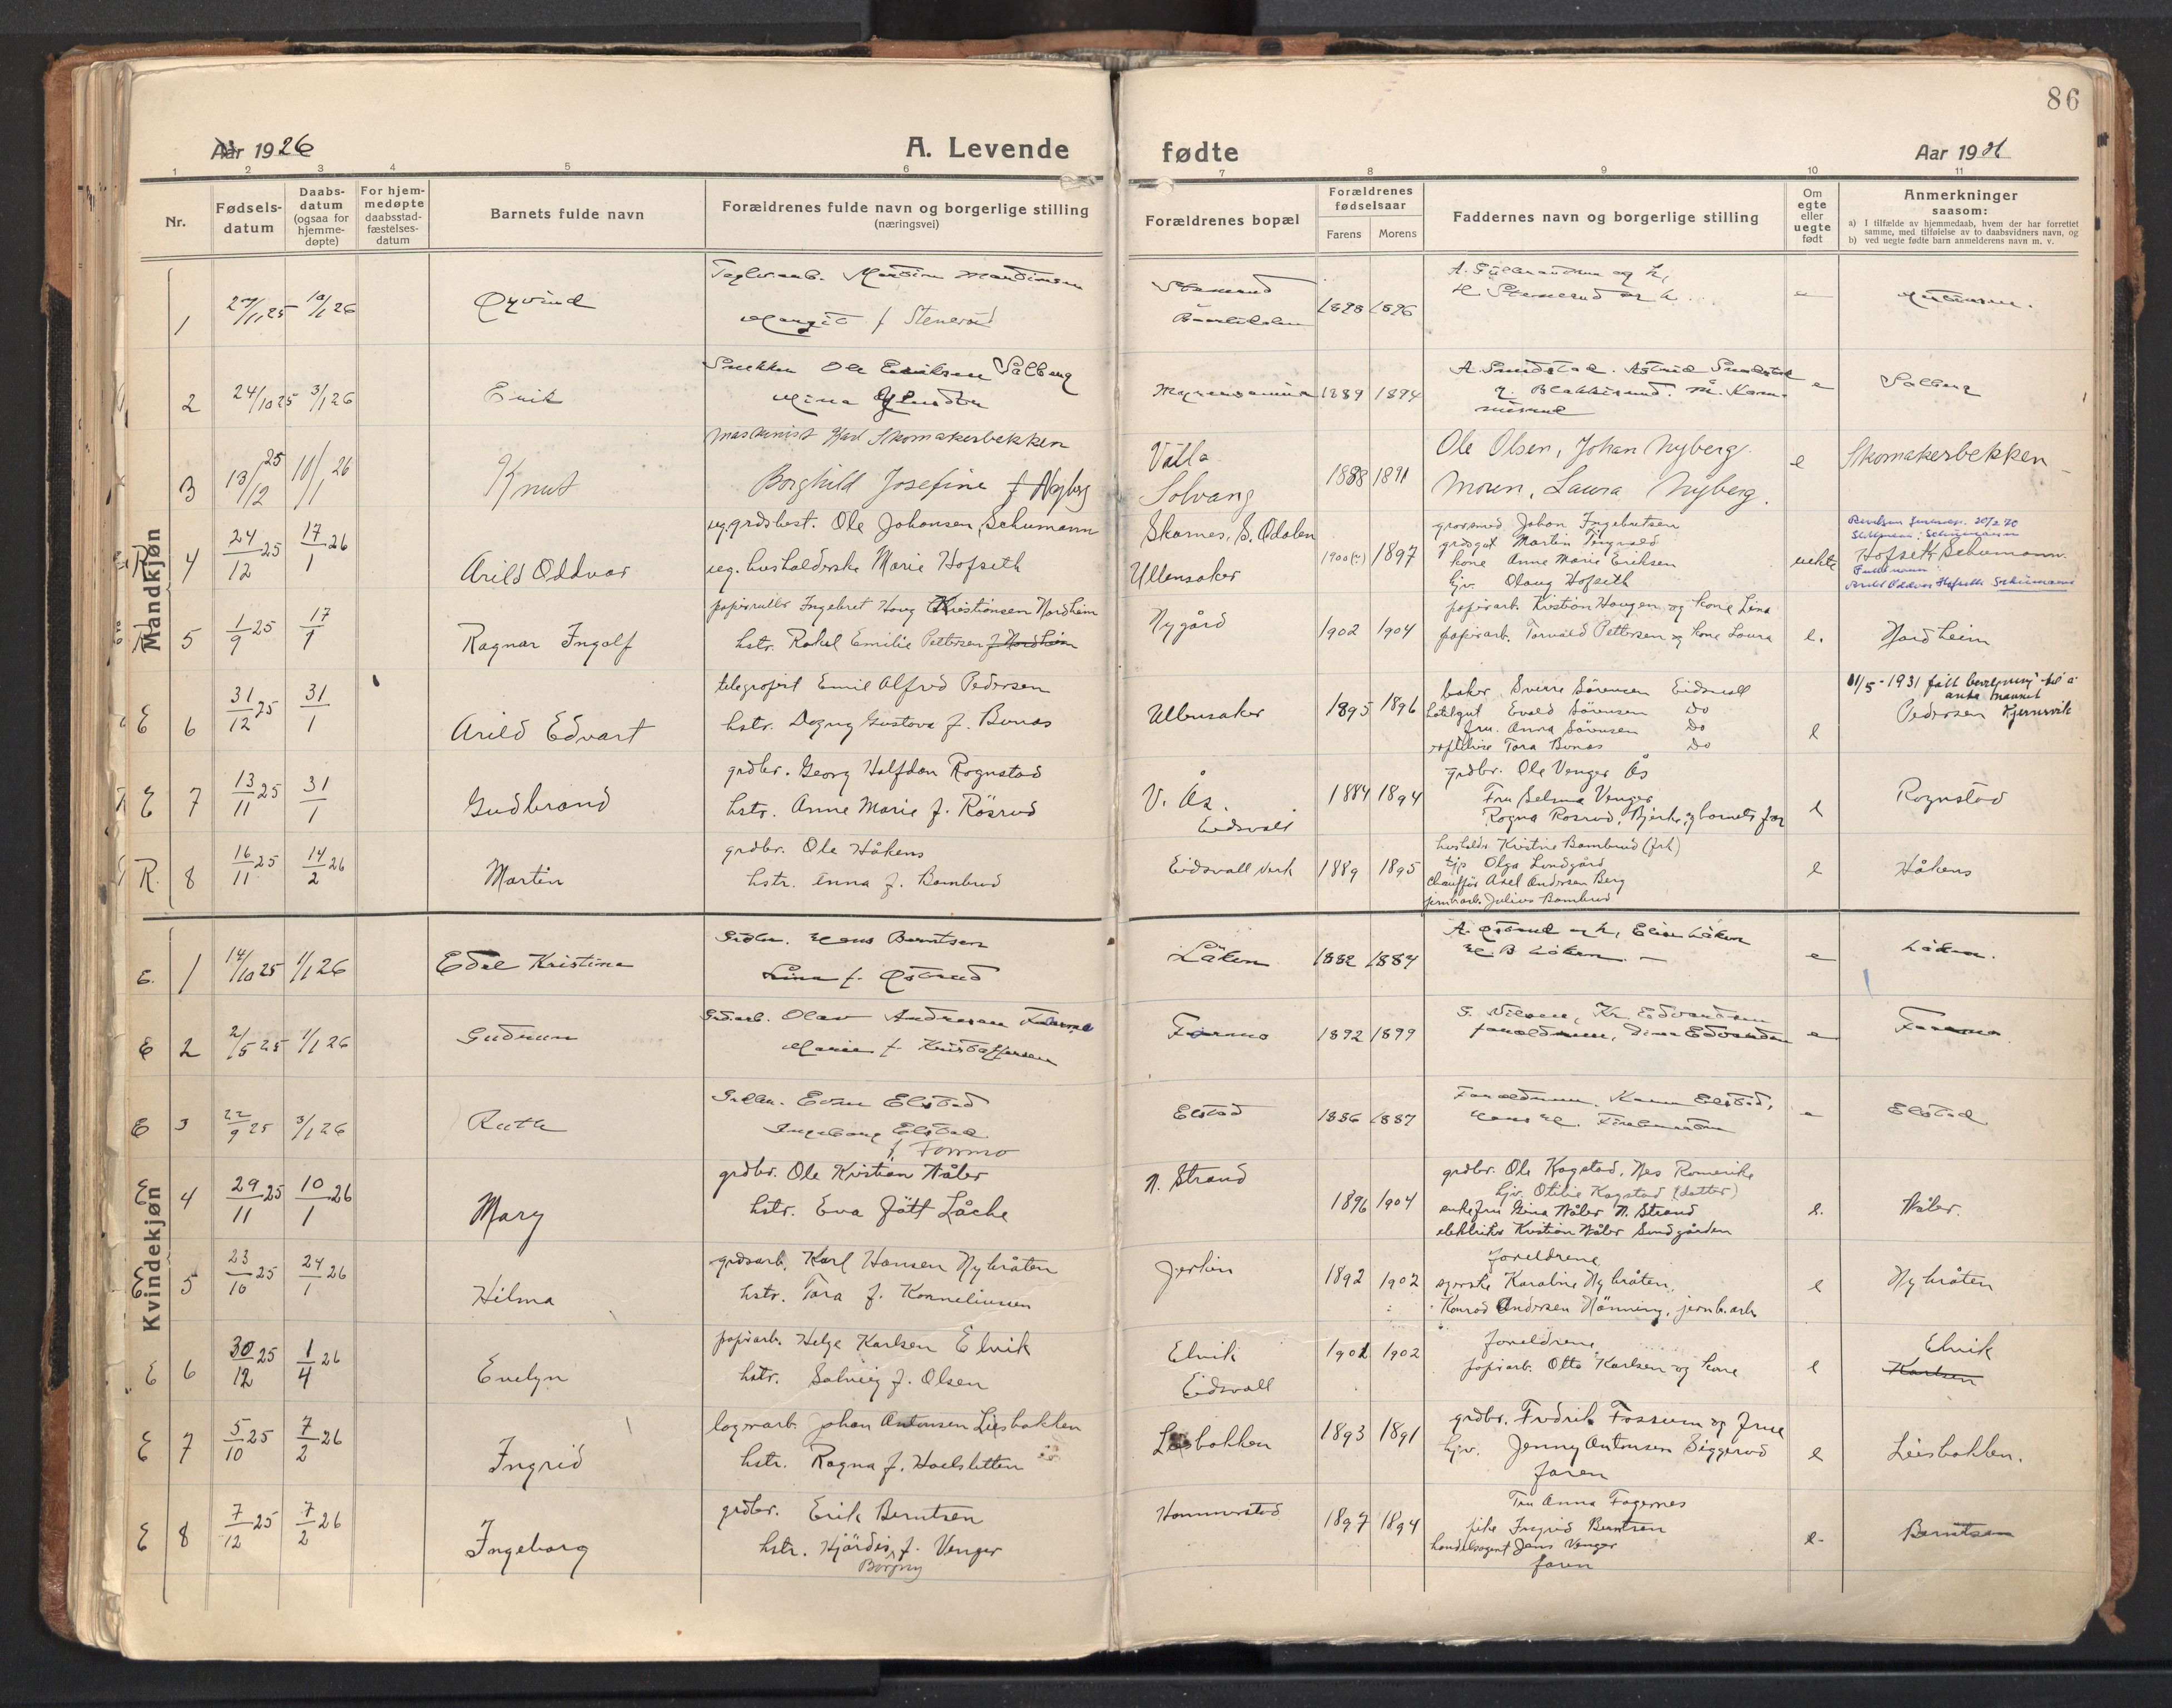 86
Aar 1926
A. Levende
fødte
Aar 1926
1 2 3 4 5 6 7 8 9 10 11
Nr.
Fødsels-
datum
Daabs-
datum
(ogsaa for
hjemme-
døpte)
For hjem-
medøpte
daabsstad-
fæstelses-
datum
Barnets fulde navn
Forældrenes fulde navn og borgerlige stilling
(næringsvei)
Forældrenes bopæl
Forældrenes
fødselsaar
Farens Morens
Faddernes navn og borgerlige stilling
Om
egte
eller
uegte
født
Anmerkninger
saasom:
a) I tilfælde av hjemmedaab, hvem der har forrettet
samme, med tilføielse av to daabsvidners navn, og
b) ved uegte fødte barn anmelderens navn m. v.
Mandkjøn
1 Øyvind
Margit f. Stenerud
1898 1896
2 24/10 25 3/1 26 Erik
Ole Eriksen Solberg
Mina
1889 1894
e Solberg
3 13/12 25 10/1 26 Knut
Maskinist Karl Skomakerbekken
Borghild Josefine f. Nyberg
Solvang
1888 1891
Ole Olsen, Johan Nyberg.
Moren, Laura Nyberg.
e Skomakerbekken
4 24/12 25 17/1 26 Arild Oddvar
ug. grdsbest. Ole Johansen Schumann
ug. husholderske Marie Hofseth
Skarnes, S. Odalen
Ullensaker
1900 1897
Johan Ingebretsen
grdsgut Martin
kone Anne Marie Eriksen
hjv. Olaug Hofseth
uekte
Hofseth Schumann
Arild Oddvar Hofseth Schumann
5 1/9 25 17/1 Ragnar Ingolf
Ingebret Haug Kristiansen Nordheim
hstr. Rakel Emilie Pettersen f. Nordheim
Nygård
1902 1904
papirarb. Kristian Haugen og kone Lina
papirarb. Torvald Pettersen og kone Laura
e. Nordheim
E 6 31/12 25 31/1 Arild Edvart
telegrafist Emil Alfred Pedersen
hstr. Dagny Gustava f. Bonas
Ullensaker
1895 1896
baker Sverre Sørensen Eidsvall
Evald Sørensen Do
fru. Anna Sørensen Do
Tora Bonas Do
e
11/5-1931 fått bevilgning til å
anta navnet
Pedersen Kjernsvik
E 7 13/11 25 31/1 Gudbrand
grdbr. Georg Halfdan Rognstad
hstr. Anne Marie f. Rösrud
V. Ås.
Eidsvall
1884 1894
grdbr. Ole Venger Ås
Fru Selma Venger
Ragna Rosrud, Bjerke, og barnets far
e Rognstad
R. 8 16/11 25 14/2 26 Martin
grdbr. Ole Håkens
hstr. Anna f. Bambrud
Eidsvall Verk
1889 1895
husholdr. Kristine Bambrud (frk)
Olga Lundgård
Chauffør Axel Andersen Berg
jernbarb. Julius Bambrud
e Håkens
Kvindekjøn
E. 1 14/10 25 1/1 26 Edel Kristine
Hans Berntsen
Lina f. Østrud
Låken
1882 1884
e Låken.
E 2 2/5 25 1/1 26 Gudrun
Olav Andresen Formo
Marie f. Kristoffersen
Formo
1892 1899
G. Nilsen, Kr. Edvardsen
e Formo
E 3 22/9 25 3/1 26 Ruth
Elstad
Ingeborg Elstad
f. Formo
Elstad
1886 1887
Foreldrene, Karen Elstad,
e Elstad
E 4 29/11 25 10/1 26 Mary
grdbr. Ole Kristian Nåler
hstr. Eva Jätt Låche
N. Strand
1896 1904
grdbr. Ole Kogstad, Nes Romerike
hjv. Otilie Kogstad (datter)
enkefru Gina Nåler N. Strand
elektriker Kristian Nåler Sundgården
e. Nåler.
E 5 23/10 25 24/1 26 Hilma
grdsarb. Karl Hansen Nybråten
hstr. Tora f. Korneliussen
1892 1902
foreldrene
Karoline Nybråten,
Konrad Andersen Hänning, jernb.arb
e Nybråten
E 6 30/12 25 1/4 26 Evelyn
papirarb. Helge Karlsen Elvik
hstr. Solveig f. Olsen
Elvik
Eidsvall
1901 1902
foreldrene
papirarb. Otto Karlsen og kone
e Elvik
Karlsen
E 7 5/10 25 7/2 26 Ingrid
lagerarb. Johan Antonsen Liesbakken
hstr. Ragna f. Haelsletten
Liesbakken
1893 1891
grdbr. Fredrik Fossum og frue
hjv. Jenny Antonsen Siggerud
faren
e Liesbakken.
E 8 7/12 25 7/2 26 Ingeborg
grdbr. Erik Berntsen
hstr. Hjördis f. Venger
Borgny
Hammerstad
1897 1894
Fru Anna Fagernes
pike Ingrid Berntsen
handelsagent Jens Venger
faren
e. Berntsen